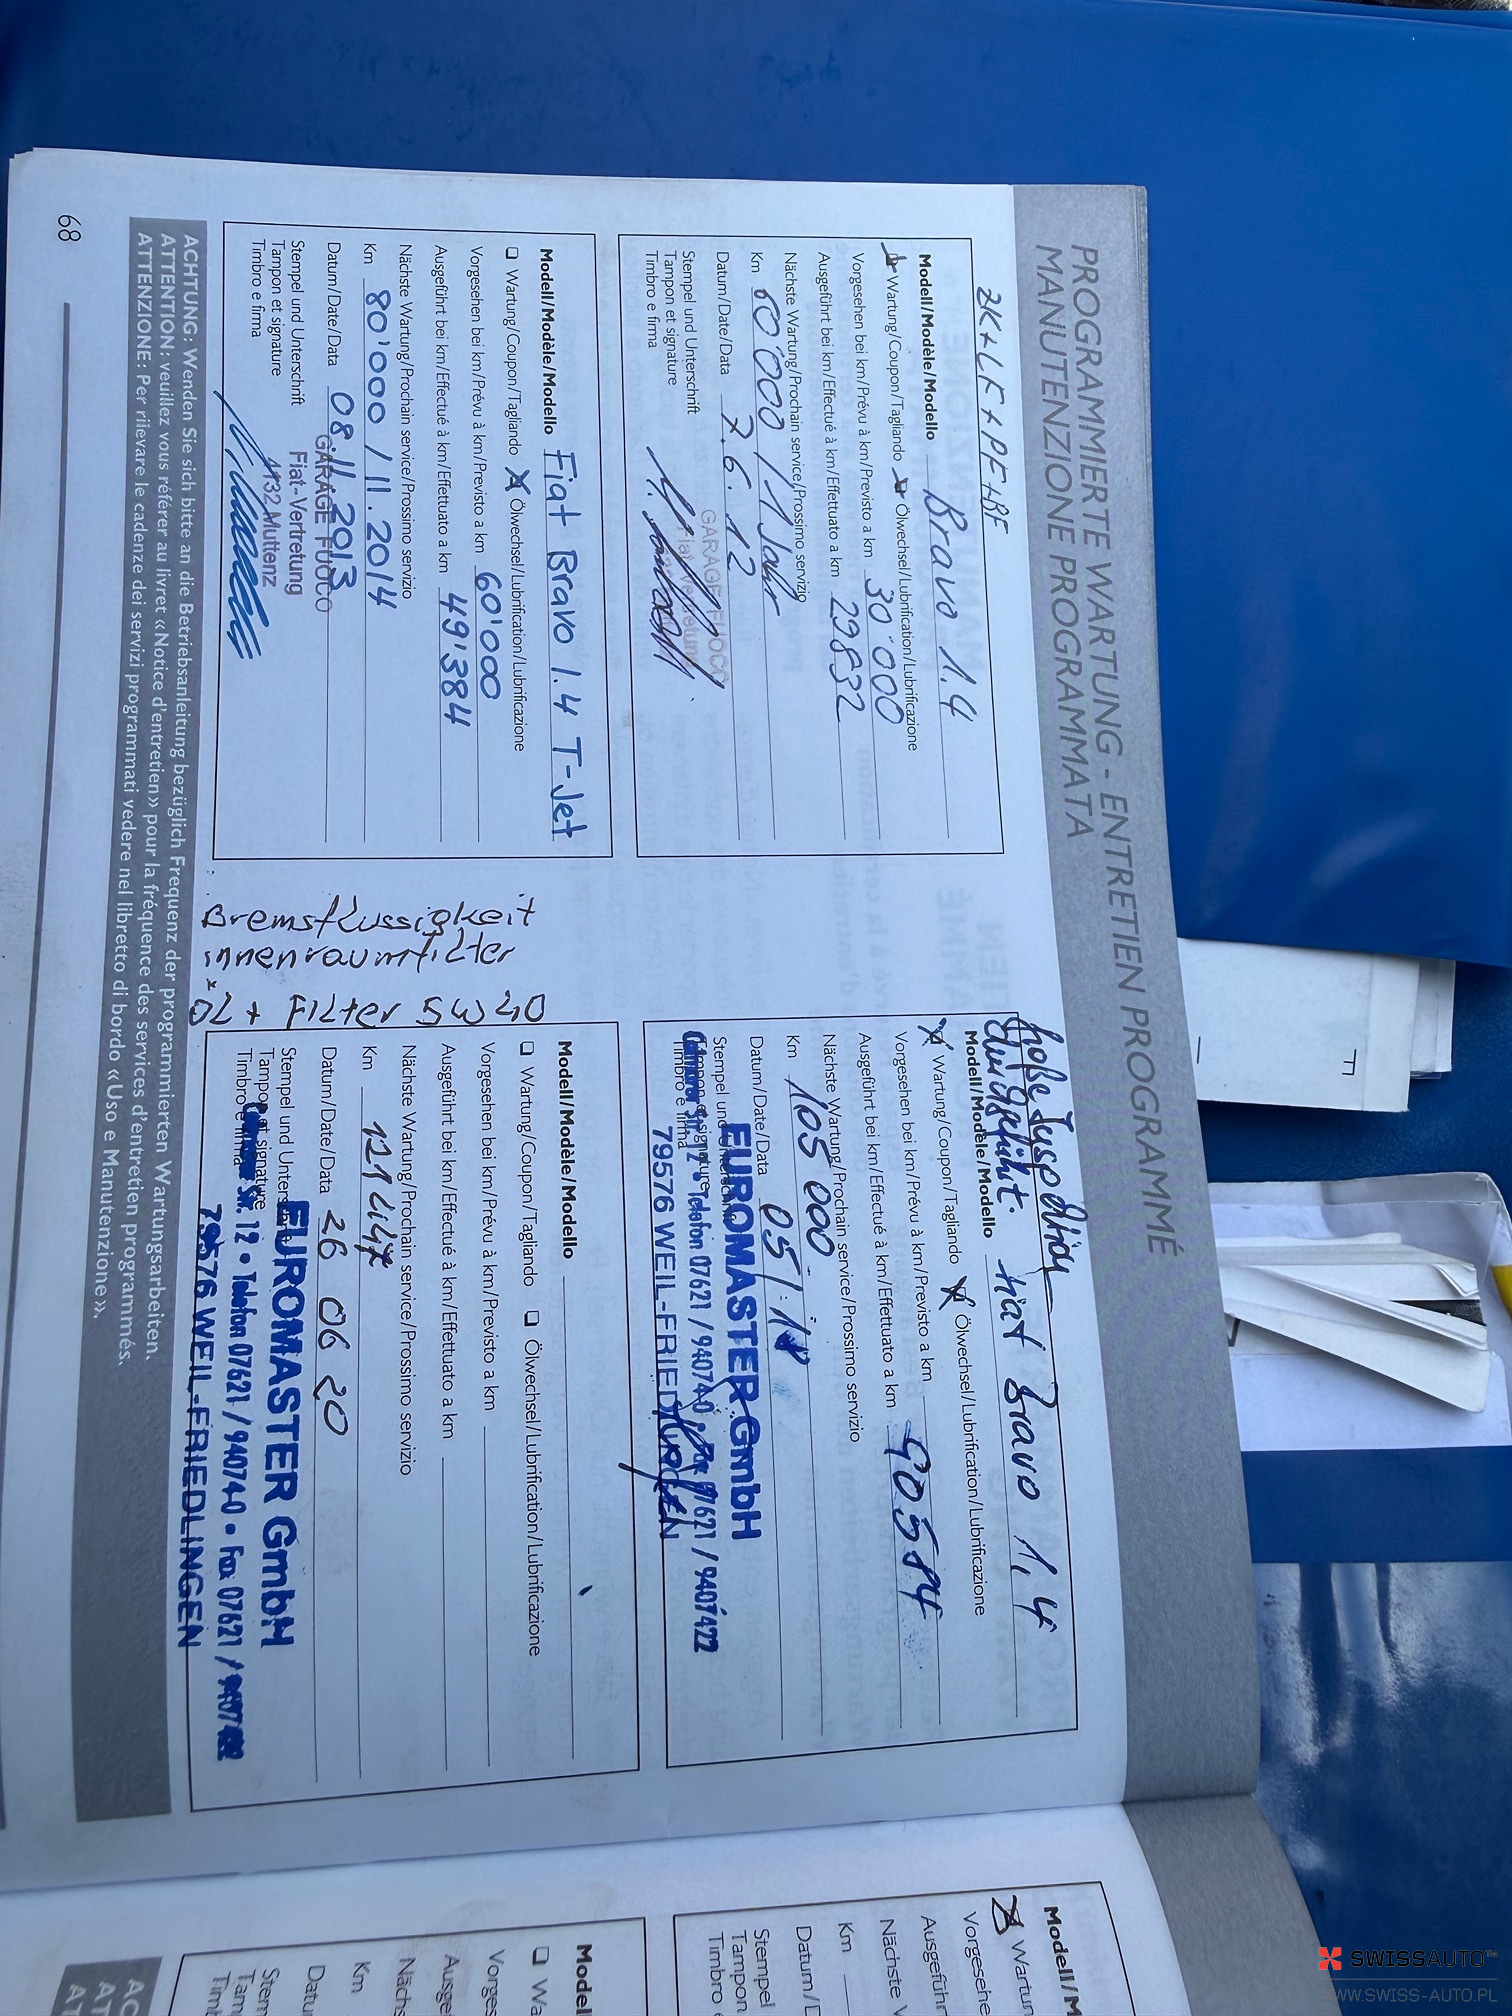 PROGRAMMIERTE WARTUNG - ENTRETIEN PROGRAMMÉ
MANUTENZIONE PROGRAMMATA
Modell/Modèle/Modello Bravo 1.4
Wartung/Coupon/Tagliando Ölwechsel/Lubrification/Lubrificazione
Vorgesehen bei km/Prévu à km/Previsto a km 30'000
Ausgeführt bei km/Effectué à km/Effettuato a km 29832
Nächste Wartung/Prochain service/Prossimo servizio
Km 60'000 / 1 Jahr
Datum/Date/Data 7.6.12
Stempel und Unterschrift
Tampon et signature
Timbro e firma
GARAGE FUOCO
Modell/Modèle/Modello Fiat Bravo 1.4 T-Jet
Wartung/Coupon/Tagliando Ölwechsel/Lubrification/Lubrificazione
Vorgesehen bei km/Prévu à km/Previsto a km 60'000
Ausgeführt bei km/Effectué à km/Effettuato a km 49'384
Nächste Wartung/Prochain service/Prossimo servizio
Km 80'000 / 11.2014
Datum/Date/Data 08.11.2013
Stempel und Unterschrift
Tampon et signature
Timbro e firma
GARAGE FUOCO
Fiat-Vertretung
4132 Muttenz
große Inspektion
durchgeführt.
Modell/Modèle/Modello Fiat Bravo 1,4
Wartung/Coupon/Tagliando Ölwechsel/Lubrification/Lubrificazione
Vorgesehen bei km/Prévu à km/Previsto a km
Ausgeführt bei km/Effectué à km/Effettuato a km 90584
Nächste Wartung/Prochain service/Prossimo servizio
Km 105000
Datum/Date/Data
Stempel und
Timbro e firma
EUROMASTER GmbH
Str. 12 • Telefon 07621 / 94074-0 • Fax 07621 / 9407422
79576 WEIL-FRIEDLINGEN
Bremsflussigkeit
innenraumfilter
ÖL + Filter 5W40
Modell/Modèle/Modello
Wartung/Coupon/Tagliando Ölwechsel/Lubrification/Lubrificazione
Vorgesehen bei km/Prévu à km/Previsto a km
Ausgeführt bei km/Effettué à km/Effettuato a km
Nächste Wartung/Prochain service/Prossimo servizio
Km 121447
Datum/Date/Data 26 06 20
Stempel und
Tampon et signature
Timbro e firma
EUROMASTER GmbH
Str. 12 • Telefon 07621 / 94074-0 • Fax 07621 / 9407422
79576 WEIL-FRIEDLINGEN
ACHTUNG: Wenden Sie sich bitte an die Betriebsanleitung bezüglich Frequenz der programmierten Wartungsarbeiten.
ATTENTION: veuillez vous référer au livret «Notice d'entretien» pour la fréquence des services d'entretien programmés.
ATTENZIONE: Per rilevare le cadenze dei servizi programmati vedere nel libretto di bordo «Uso e Manutenzione».
68
Modell/M
Wartun
Vorgesehe
Ausgeführ
Nächste
Km
Datum/D
Stempel
Tampon
Timbro
Model
Wa
Vorges
Ausge
Nächs
Km
Datu
SWISSAUTO
WWW.SWISS-AUTO.PL